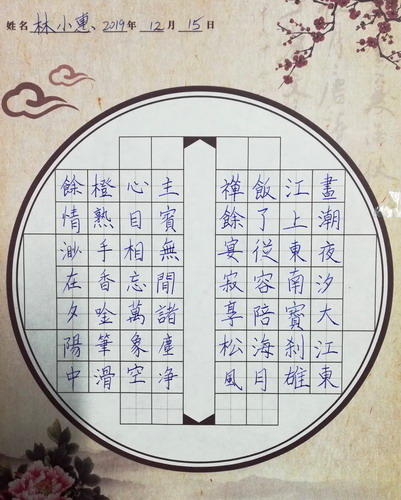 姓名 林小惠、2019年 12月 15日
晝潮夜汐大江東
江上東南寶刹雄
飯了從容陪海月
禪餘宴寂享松風
主賓無間諸塵净
心目相忘萬象空
橙熟手香唫筆滑
餘情渺在夕陽中